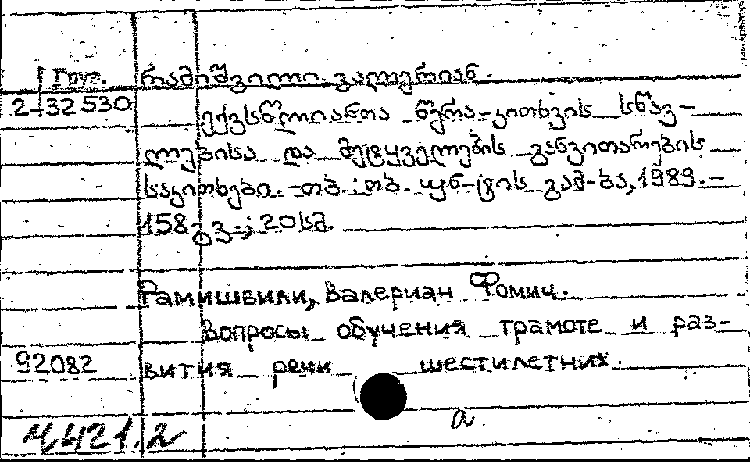 Груз.
2-32530
რამიშვილი ვალერიან.
ექვსწლიანთა წერა-კითხვის სწავ-
ლებისა და მეტყველების განვითარების
საკითხები. -თბ.: თბ. უნ-ტის გამ-ბა, 1989.-
158 გვ.; 20სმ.
Рамишвили, Валериан Фомич.
Вопросы обучения грамоте и раз-
92082
вития речи шестилетних.
Ч421.2
а